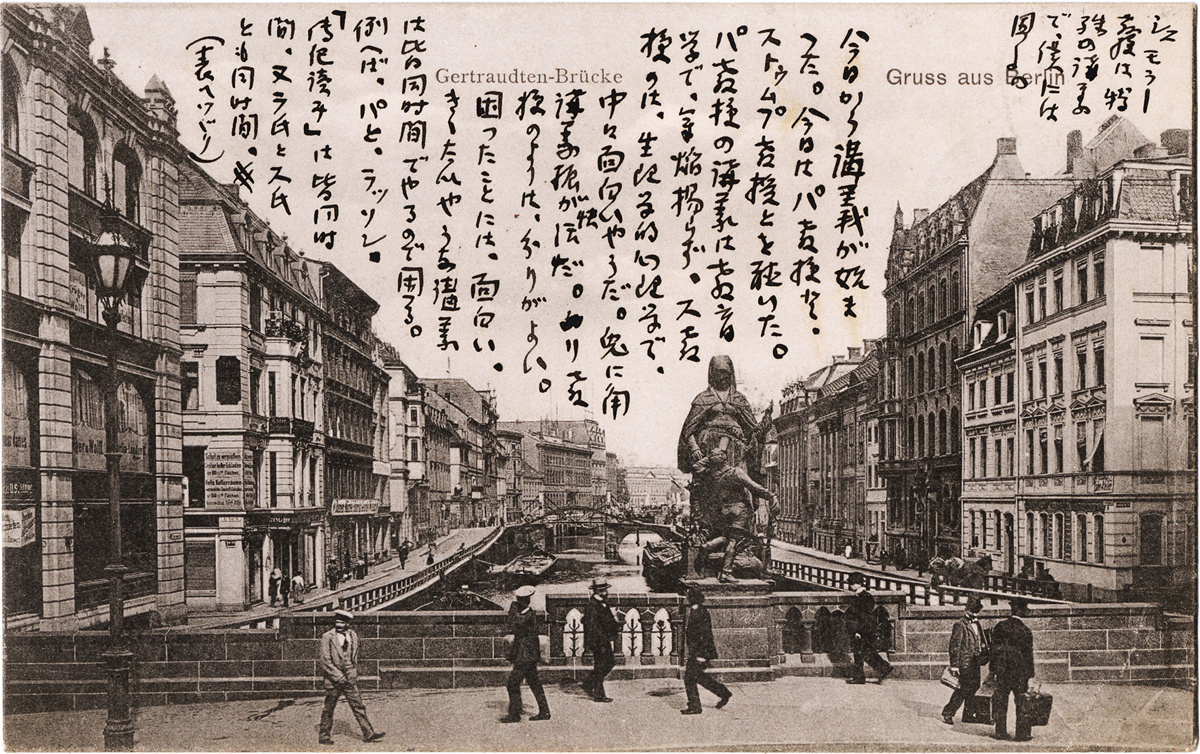 Gertraudten-Brücke
Gruss aus Berlin
シュモラー
教授は特
殊の講義
で、僕には
今日から講義が始ま
つた。今日はパ教授と、
ストゥムプ教授とを聴いた。
パ教授の講義は教育
学で、気焔揚らず。ス教
授のは、生理学的心理学で、
中々面白いやうだ。兎に角
講義振が快活だ。教
授のよりは、分りがよい。
困ったことには、面白い、
きゝたいやうな講義
は皆同時間でやるので困る。
例へば、パと、ラッソン。
は皆同時
間、又ラ氏とス氏
とも同時間、
(表へつゞく)